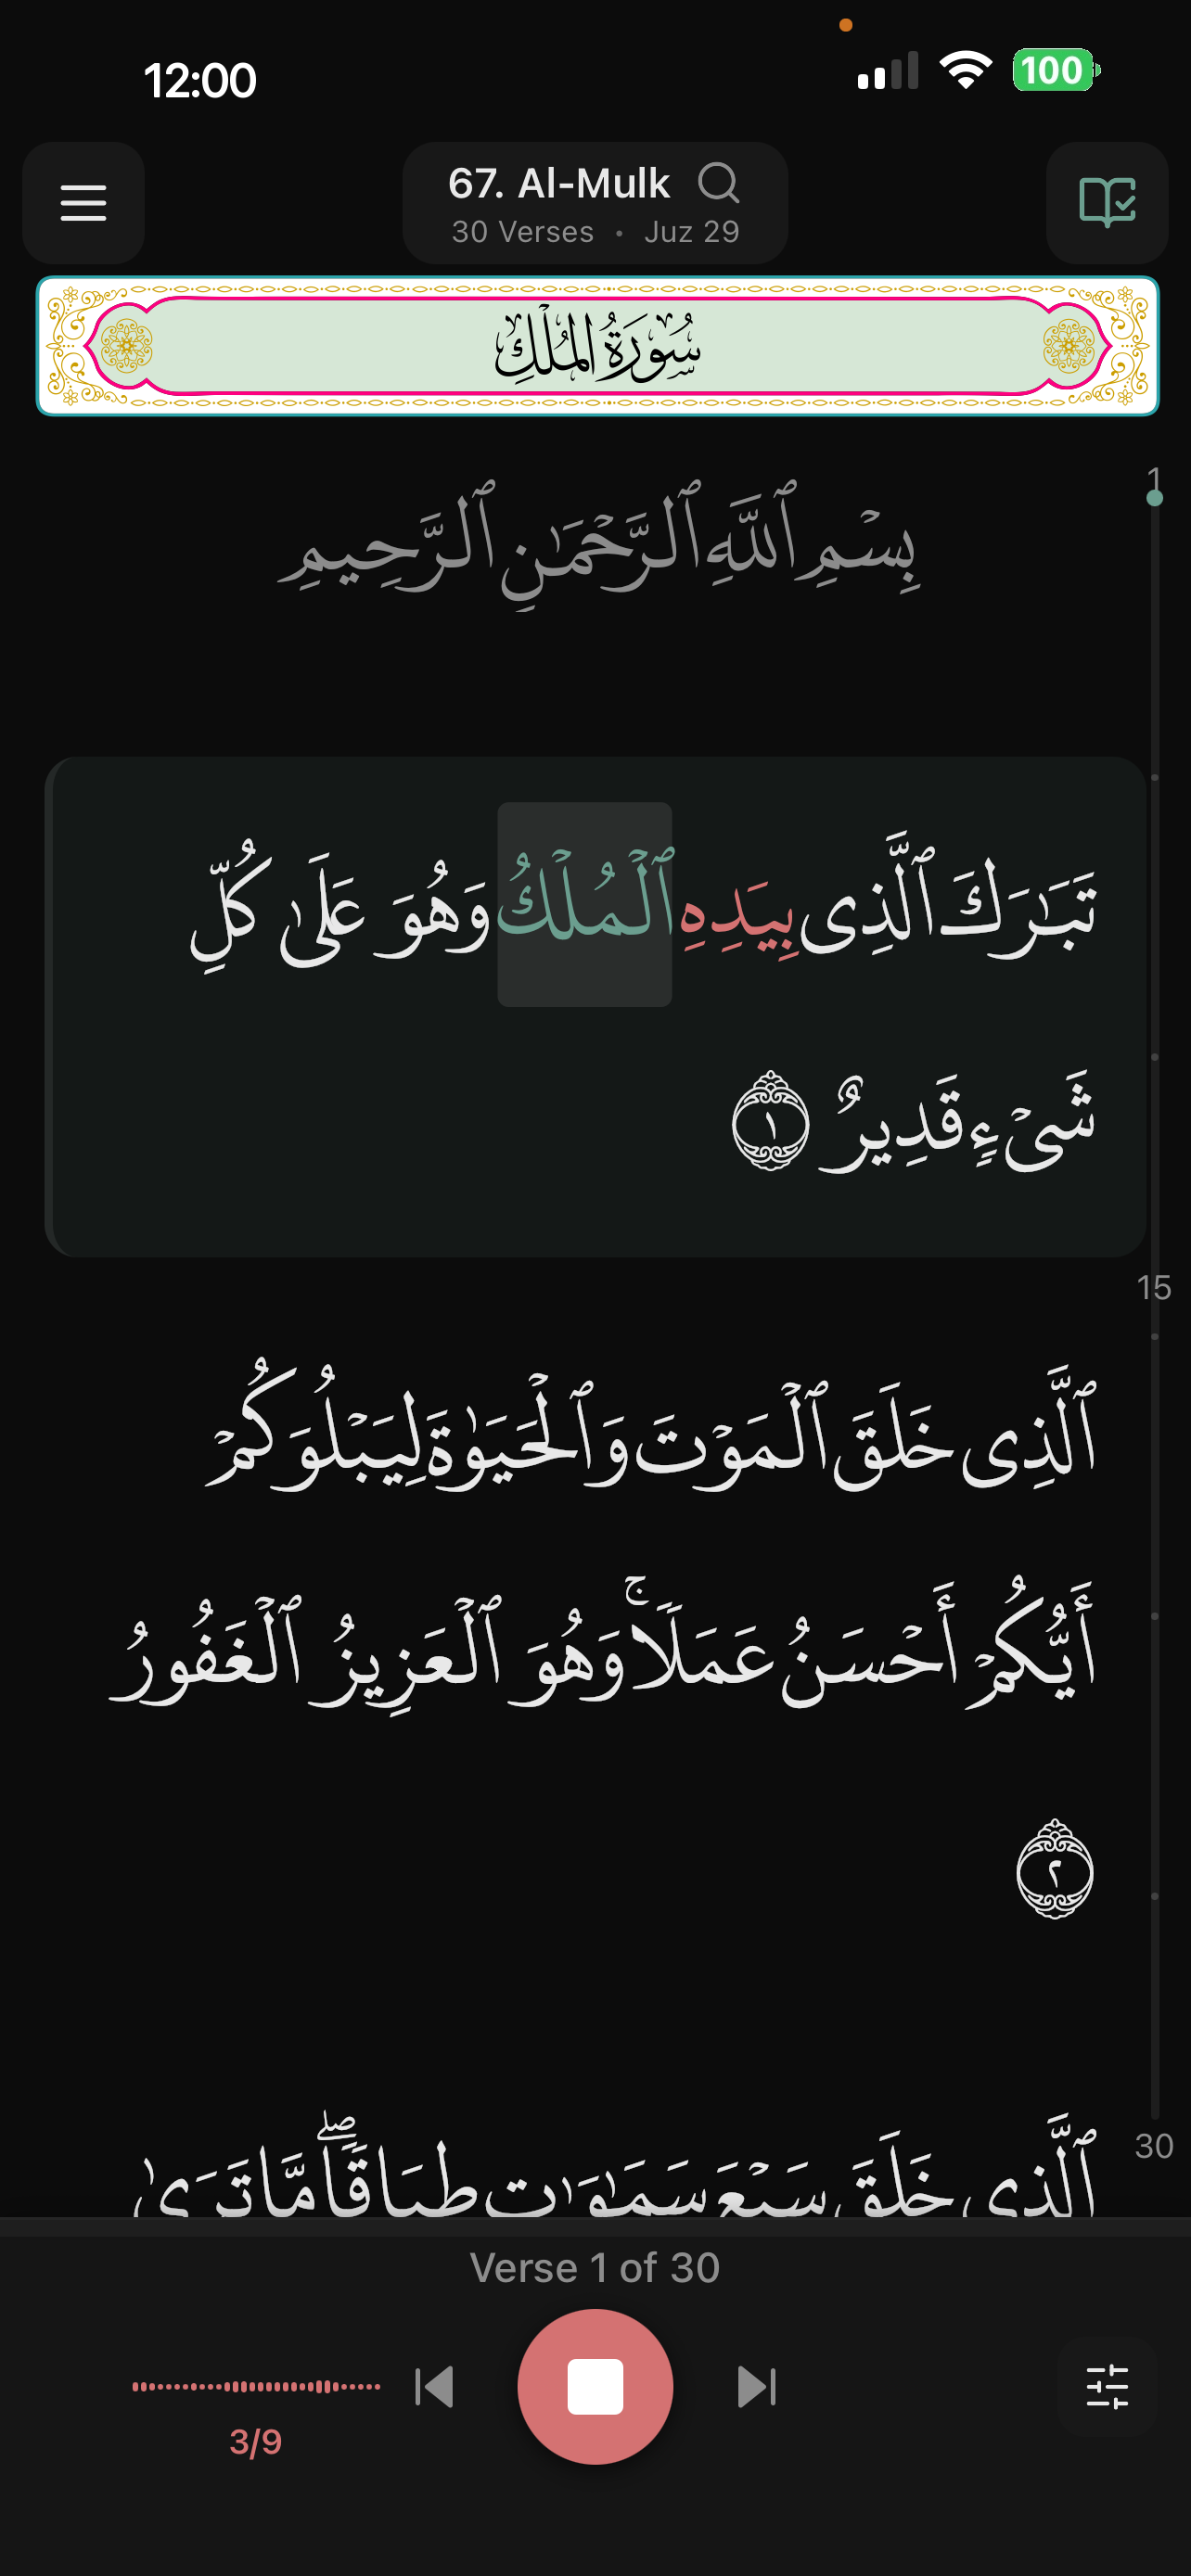 12:00
100
67. Al-Mulk
30 Verses • Juz 29
سُورَةُ الْمُلْكِ
بِسْمِ ٱللَّهِ ٱلرَّحْمَـٰنِ ٱلرَّحِيمِ
1
تَبَـٰرَكَ ٱلَّذِى بِيَدِهِ ٱلْمُلْكُ وَهُوَ عَلَىٰ كُلِّ
شَىْءٍ قَدِيرٌ ١
15
ٱلَّذِى خَلَقَ ٱلْمَوْتَ وَٱلْحَيَوٰةَ لِيَبْلُوَكُمْ
أَيُّكُمْ أَحْسَنُ عَمَلًا ۚ وَهُوَ ٱلْعَزِيزُ ٱلْغَفُورُ
٢
ٱلَّذِى خَلَقَ سَبْعَ سَمَـٰوَٰتٍ طِبَاقًا ۖ مَّا تَرَىٰ
30
Verse 1 of 30
3/9